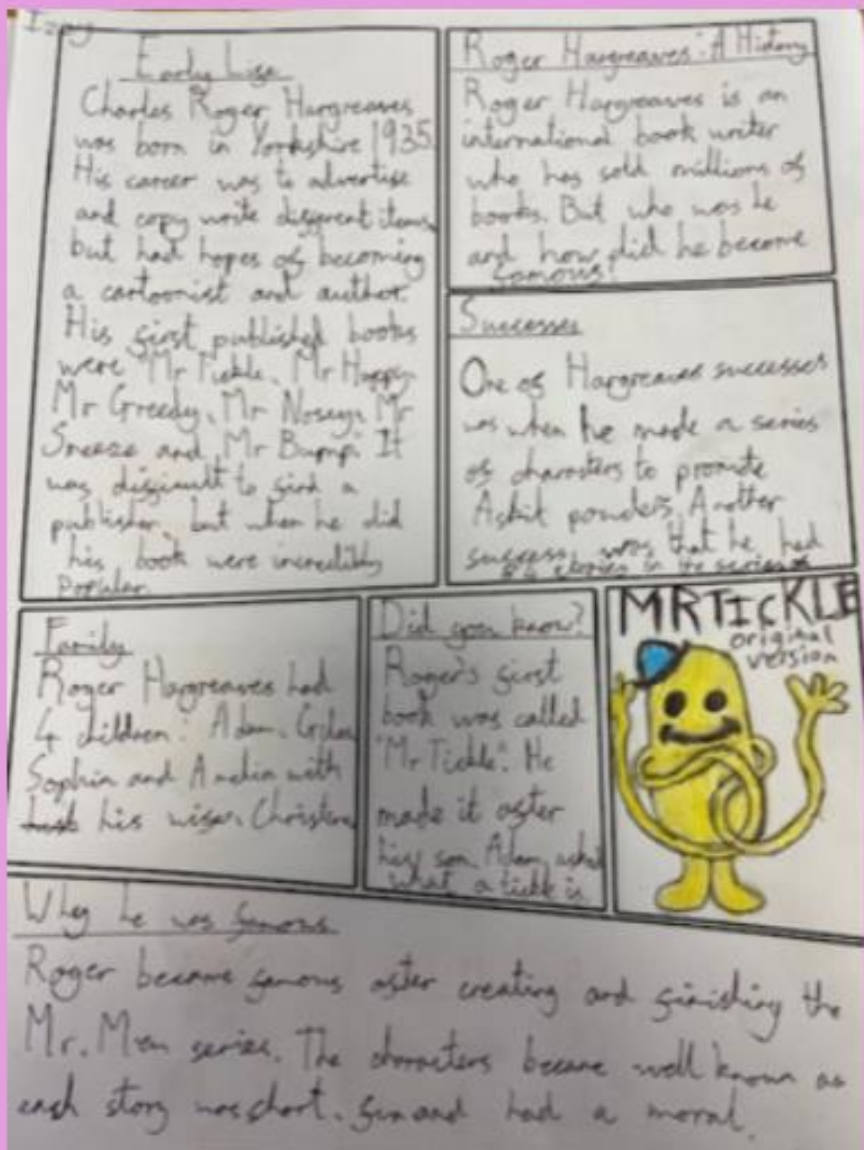 Izzy
Early Life
Charles Roger Hargreaves
was born in Yorkshire 1935.
His career was to advertise
and copy write different items,
but had hopes of becoming
a cartoonist and author.
His first published books
were Mr Tickle, Mr Happy,
Mr Greedy, Mr Nosey, Mr
Sneeze and Mr Bump. It
was difficult to find a
publisher, but when he did
his book were incredibly
popular.
Roger Hargreaves: A History
Roger Hargreaves is an
international book writer
who has sold millions of
books. But who was he
and how did he become
famous?
Successes
One of Hargreaves successes
was when he made a series
of characters to promote
Askit powders. Another
success was that he had
stories in the series of
Family
Roger Hargreaves had
4 children: Adam, Giles,
Sophia and Amelia with
his wife, Christine
Did you know?
Roger's first
book was called
"Mr Tickle". He
made it after
his son, Adam, asked
what a tickle is
MR TICKLE
original
version
Why he was famous
Roger became famous after creating and finishing the
Mr. Men series. The characters became well known as
each story was short, fun and had a moral.